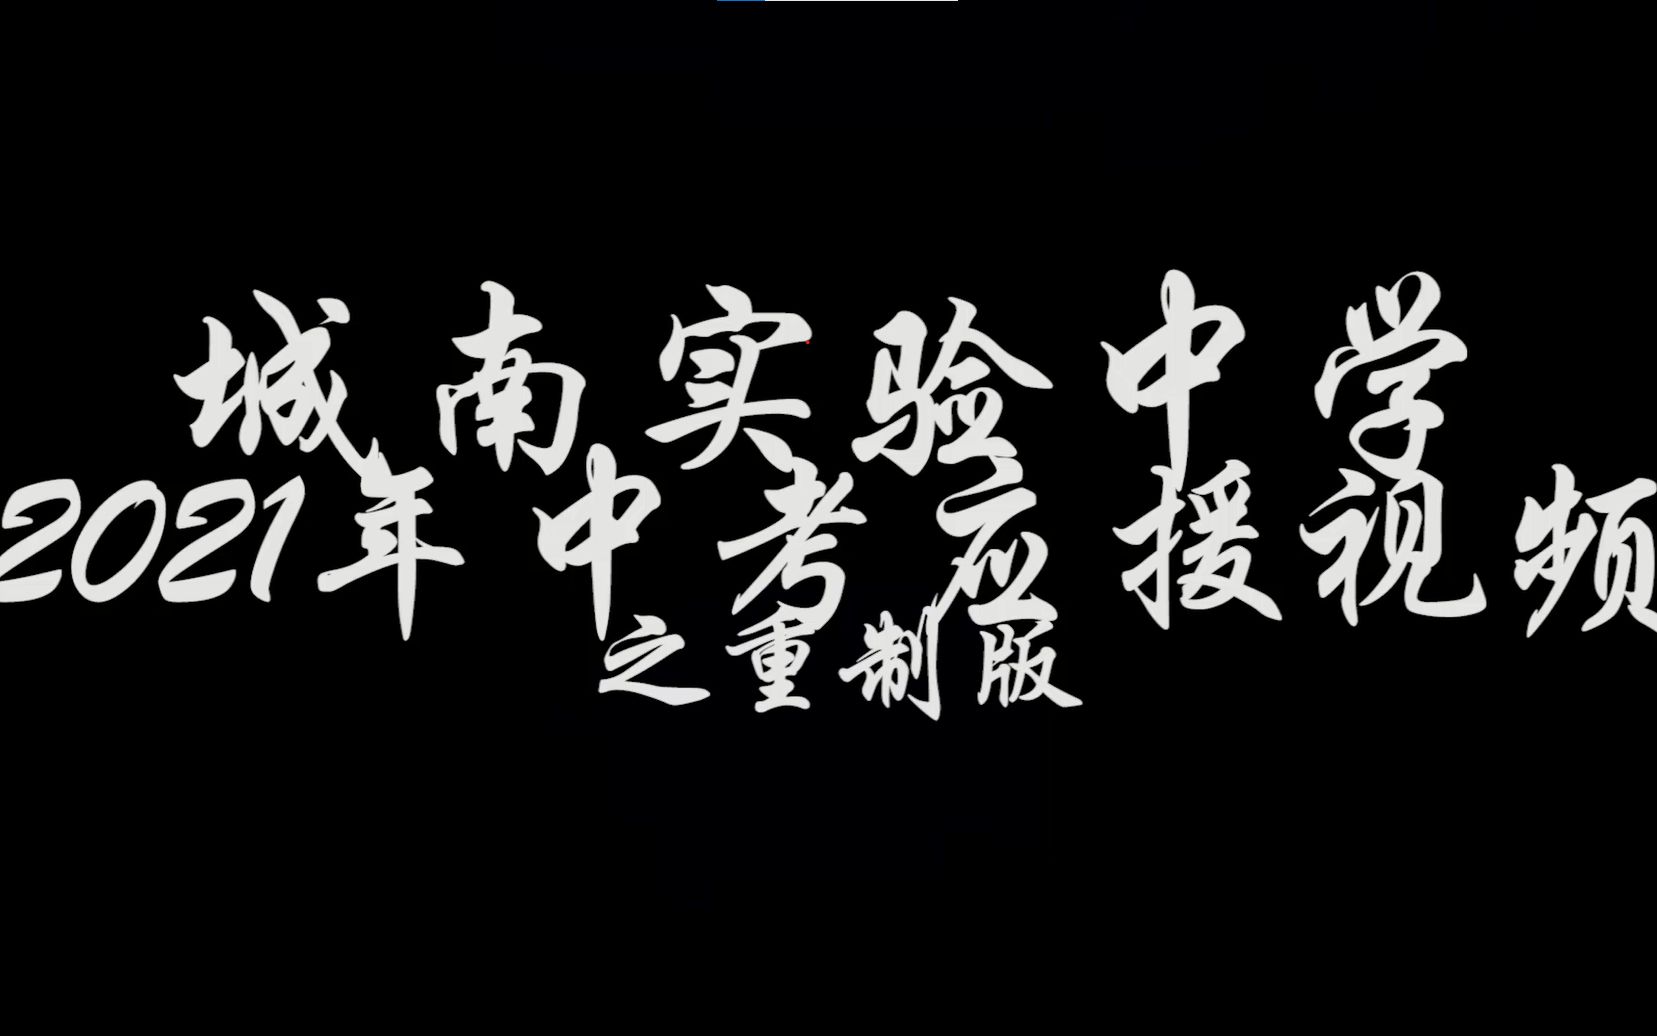 城南实验中学
2021年中考应援视频
之重制版